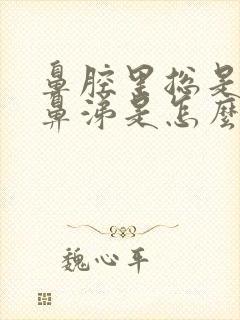 鼻腔里总是
鼻涕是怎麼
魏心平